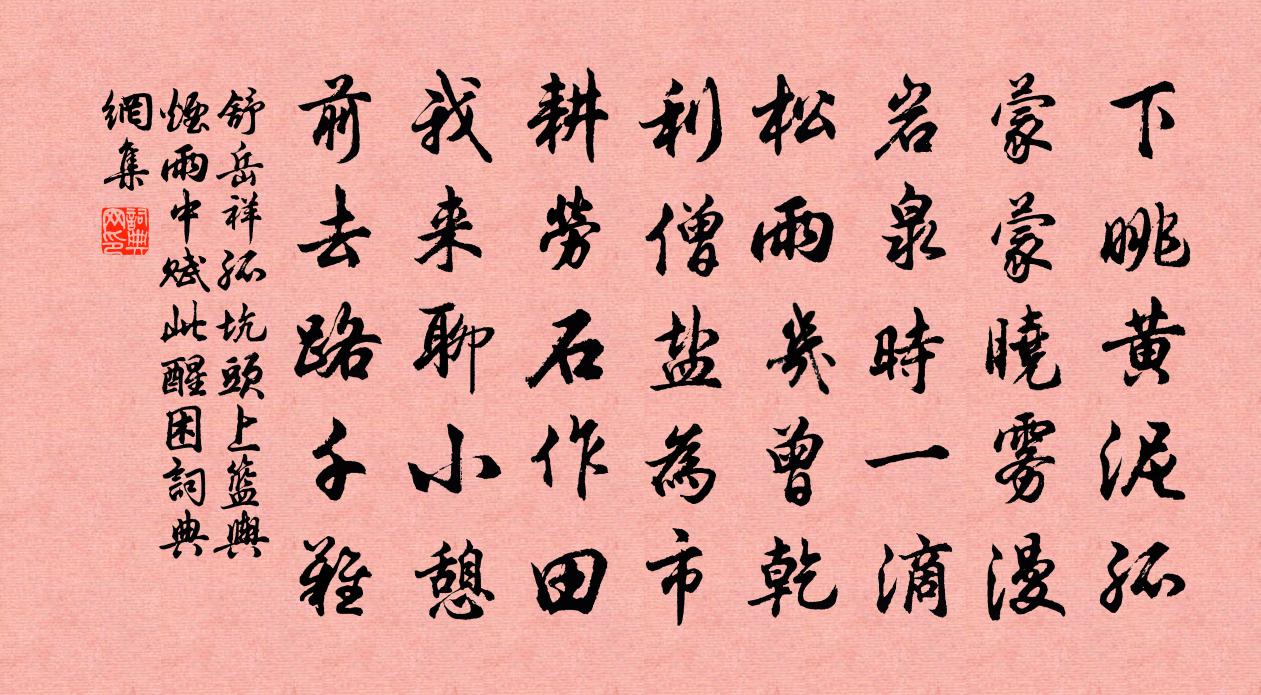 下眺黄泥孤
蒙蒙曉雾漫
岩泉時一滴
松雨幾曾乾
利僧盐為市
耕勞石作田
我来聊小憩
前去路千難
舒岳祥孤坑頭上籃輿
煙雨中赋此醒困詞典
網集
詞典网印